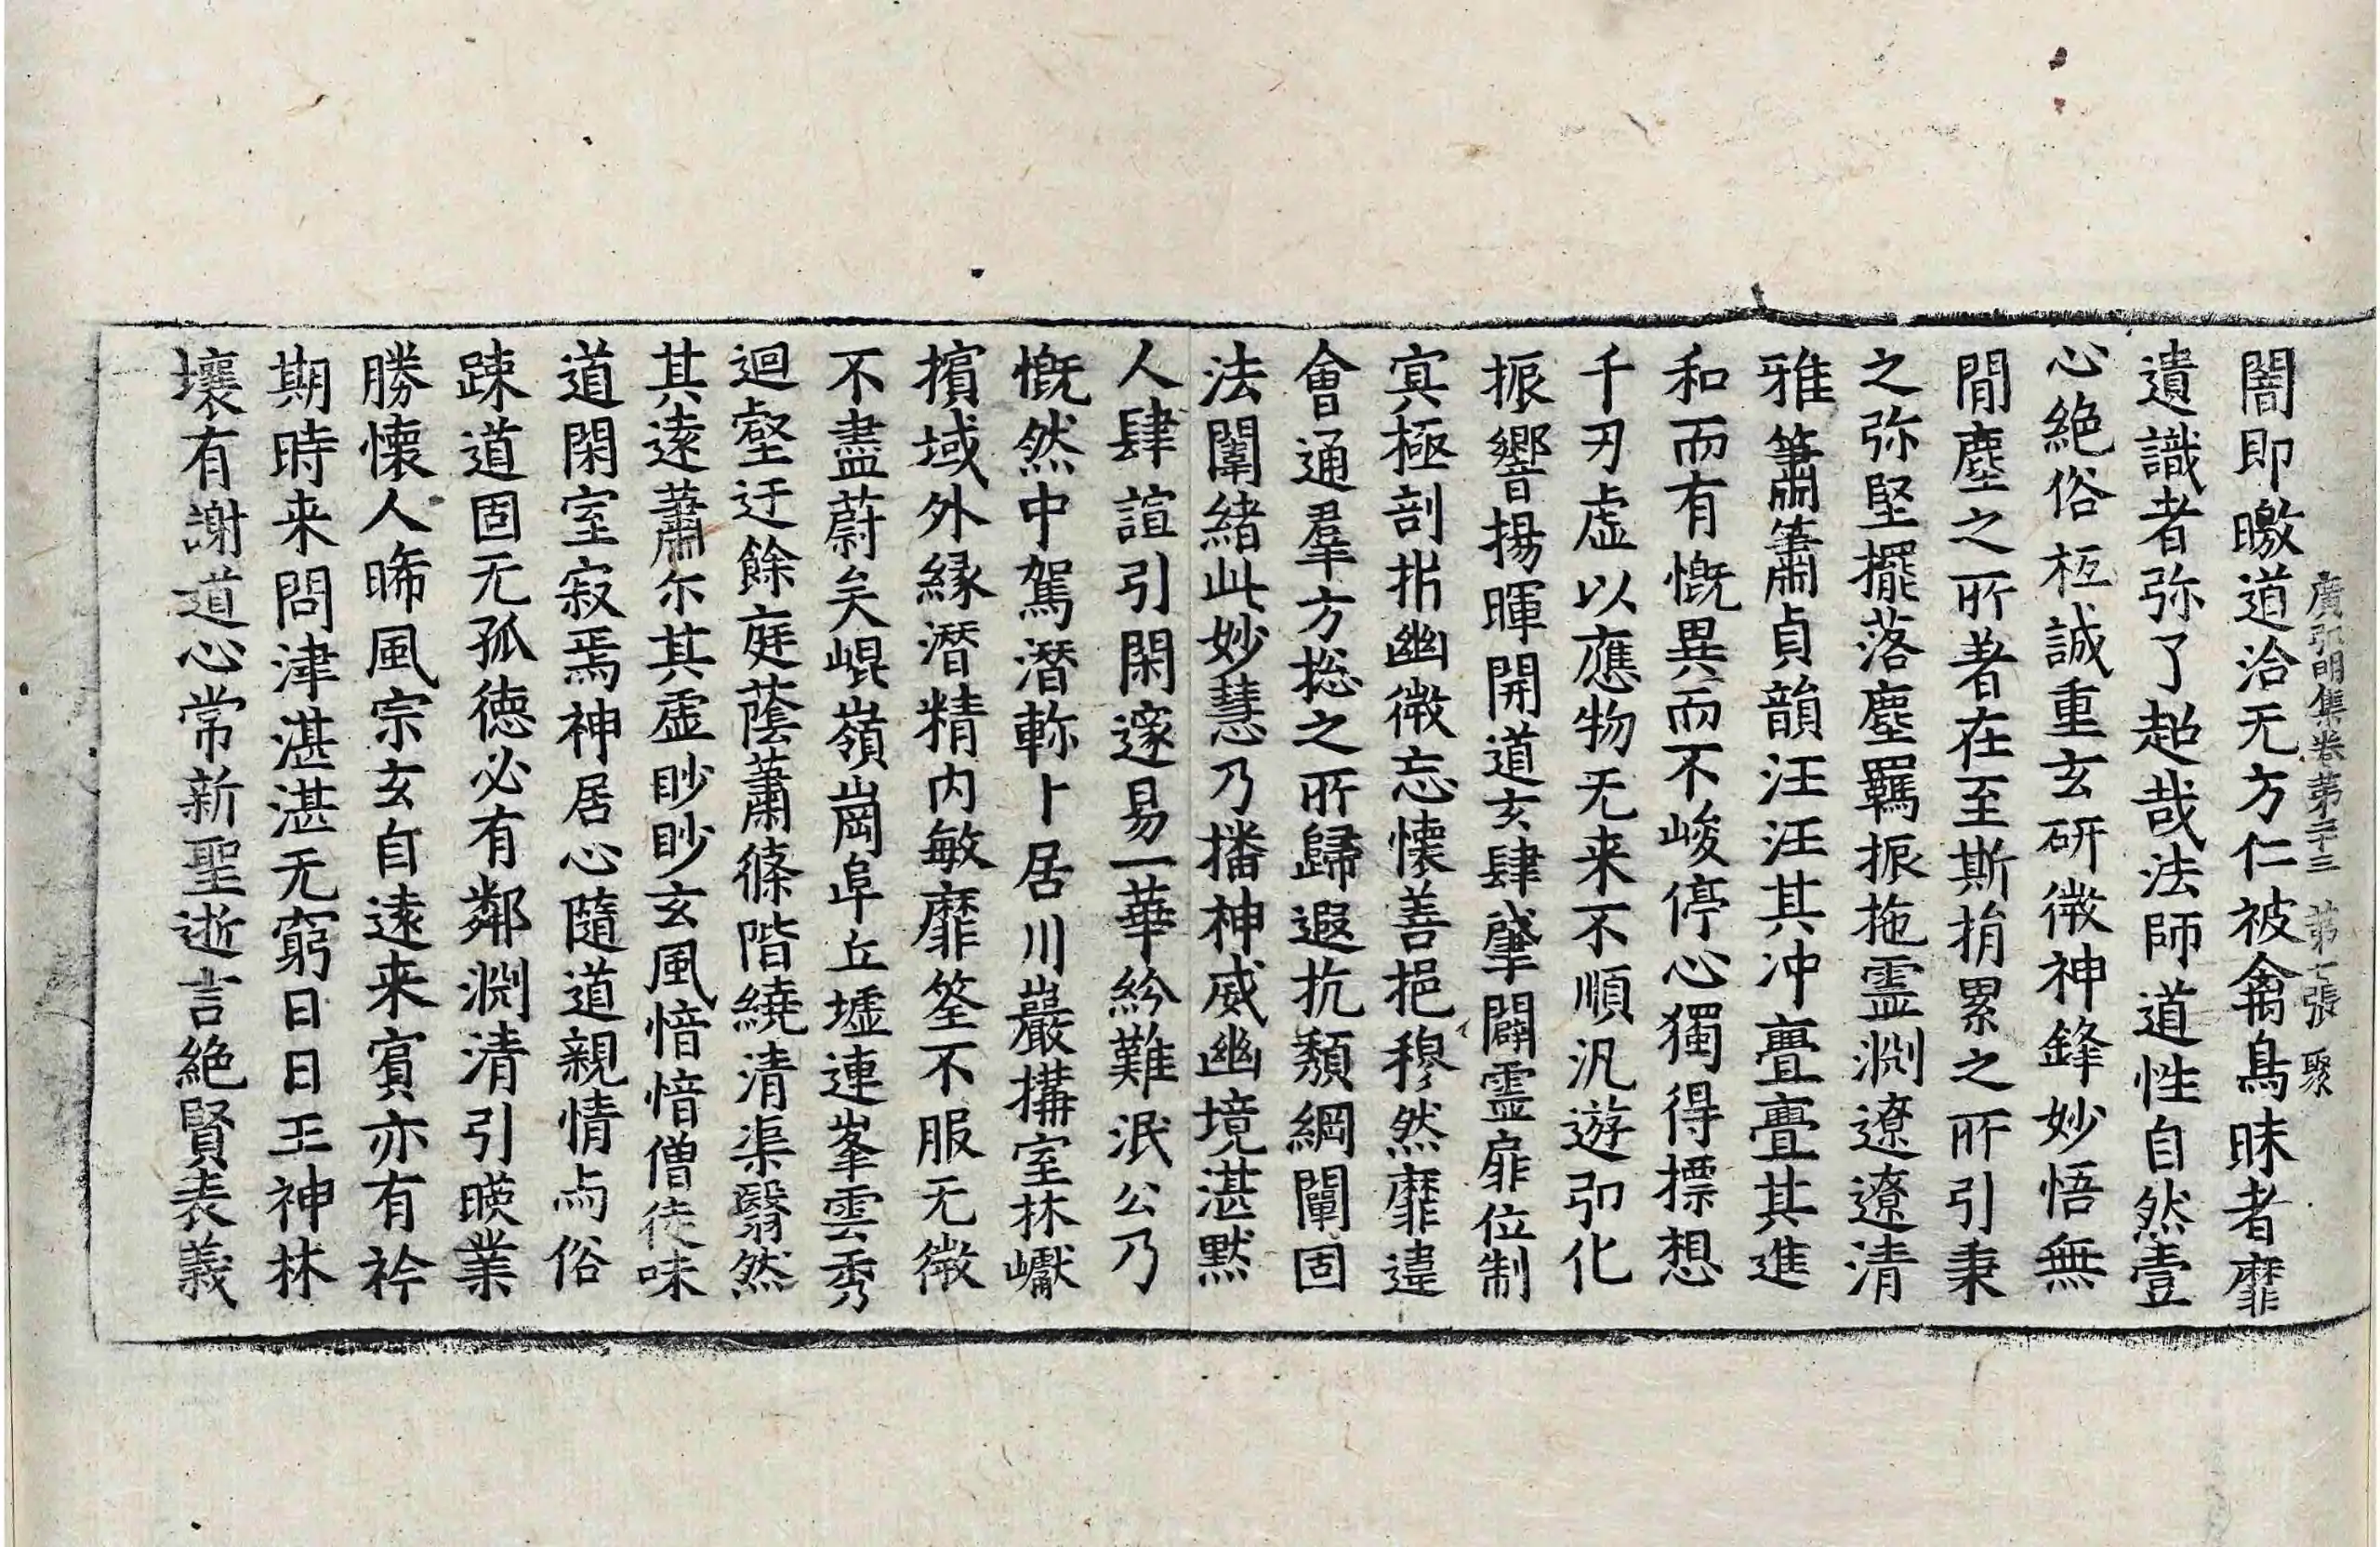 廣弘明集卷第二十三　第七張　聚
闇即曒道洽无方仁被禽鳥昧者靡
遺識者弥了超哉法師道性自然壹
心絶俗栢誠重玄研微神鋒妙悟無
閒塵之所著在至斯捐累之所引秉
之弥堅擺落塵羈振拖霊渊遼遼清
雅簫簫貞韻汪汪其冲亹亹其進
和而有慨異而不峻停心獨得摽想
千刃虚以應物无来不順汎遊弘化
振響揚暉開道玄肆肇闢霊扉位制
寘極剖析幽微忘懷善挹穆然靡違
會通羣方捴之所歸遐抗頽綱闡固
法闈緒此妙慧乃播神威幽境湛黙
人肆諠引閑邃易一華紛難泯公乃
慨然中駕潛軫卜居川巖搆室林巘
擯域外緣潛精内敏靡筌不服无微
不盡蔚矣崐嶺崗阜丘墟連峯雲秀
迴壑迂餘庭蔭蕭條階繞清渠翳然
其逺蕭尓其虚眇眇玄風愔愔僧徒味
道閑室寂焉神居心隨道親情与俗
踈道固无孤徳必有鄰渊清引暎業
勝懷人晞風宗玄自逺来賔亦有衿
期時来問津湛湛无窮日日王神林
壤有謝道心常新聖逝言絶賢表義